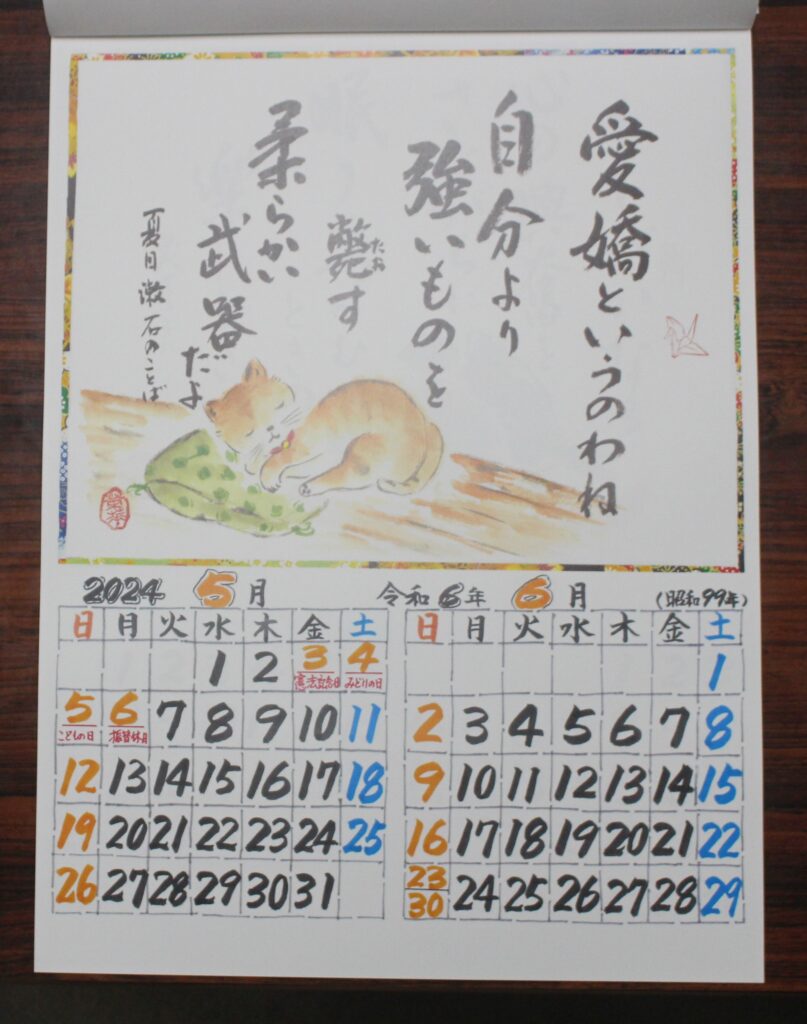 愛嬌というのわね
自分より
強いものを
斃す
たお
柔らかい
武器だよ
夏目漱石のことば
2024 5月 令和6年 6月 (昭和99年)
日 月 火 水 木 金 土
1 2 3 4
憲法記念日 みどりの日
5 6 7 8 9 10 11
こどもの日 振替休日
12 13 14 15 16 17 18
19 20 21 22 23 24 25
26 27 28 29 30 31
日 月 火 水 木 金 土
1
2 3 4 5 6 7 8
9 10 11 12 13 14 15
16 17 18 19 20 21 22
23 24 25 26 27 28 29
30